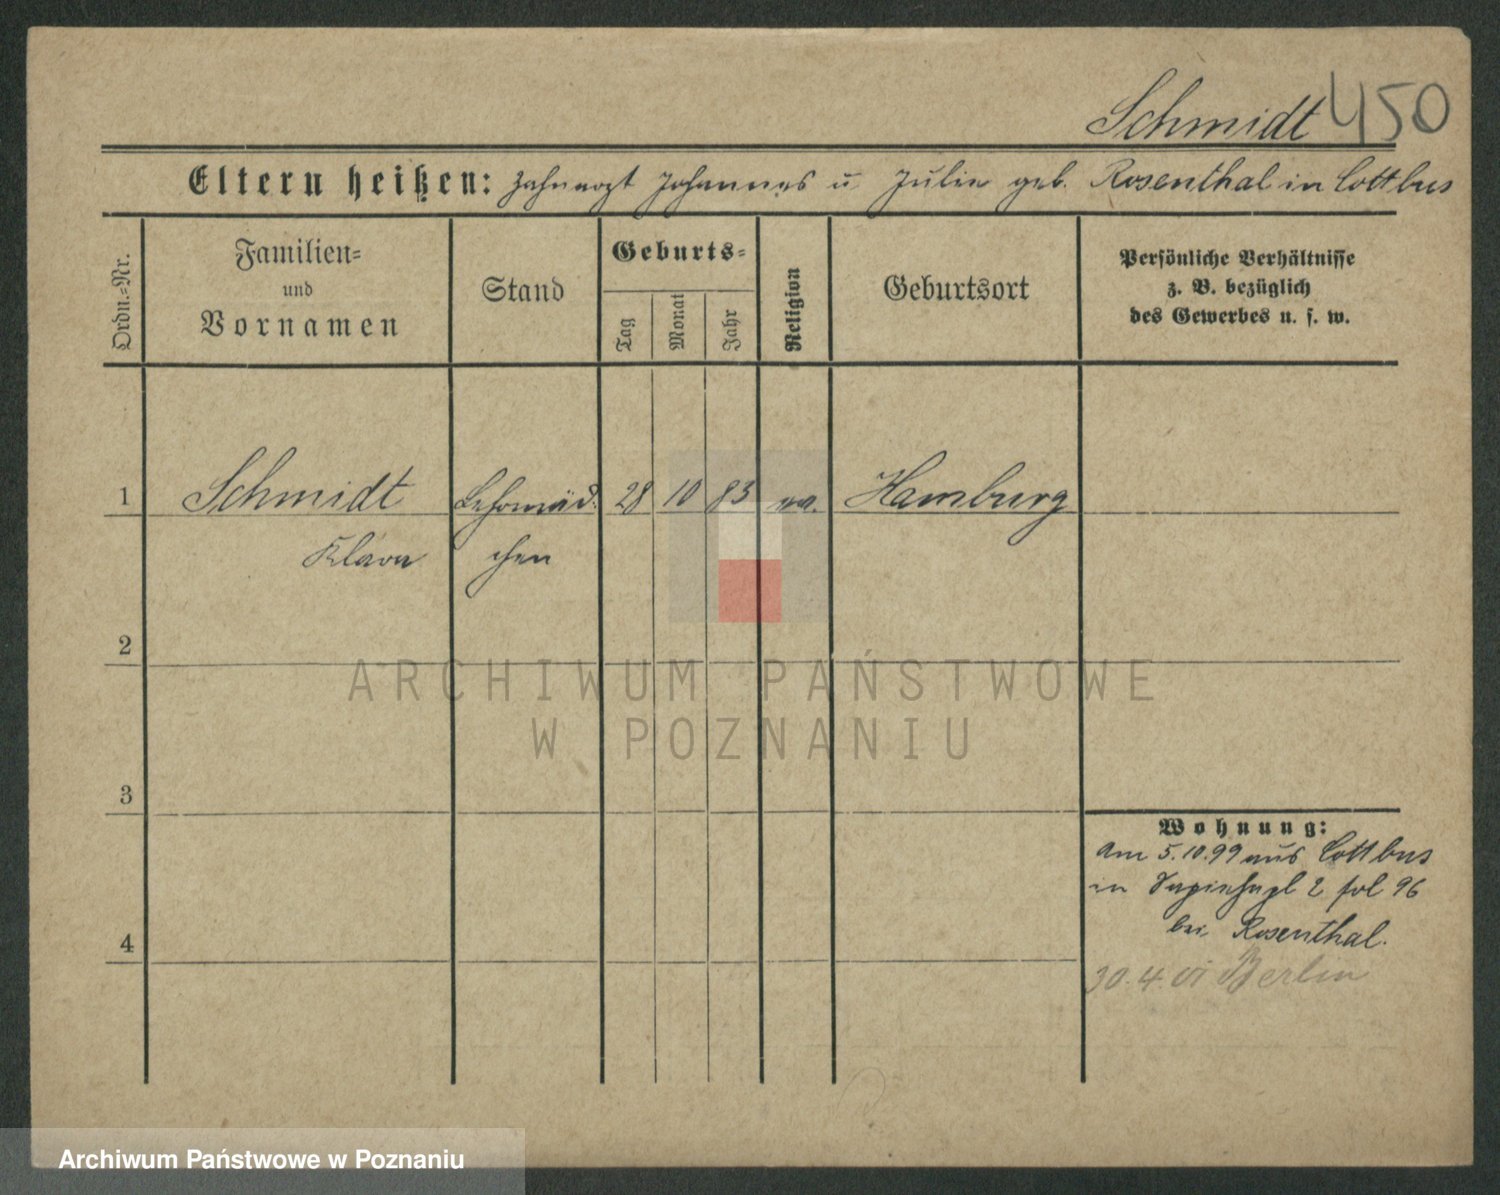 Schmidt 450
Eltern heißen: Zahnarzt Johannes u Julie geb. Rosenthal in Cottbus
Ordn.-Nr.
Familien-
und
Vornamen
Stand
Geburts-
Tag
Monat
Jahr
Religion
Geburtsort
Persönliche Verhältnisse
z. B. bezüglich
des Gewerbes u. s. w.
1 Schmidt Lehrmäd- 28 10 83 ev. Hamburg
Klara chen
2
3
4
Wohnung:
Am 5.10.99 aus Cottbus
in 2 fol 96
bei Rosenthal.
30.4.01 Berlin
ARCHIWUM PAŃSTWOWE
W POZNANIU
Archiwum Państwowe w Poznaniu